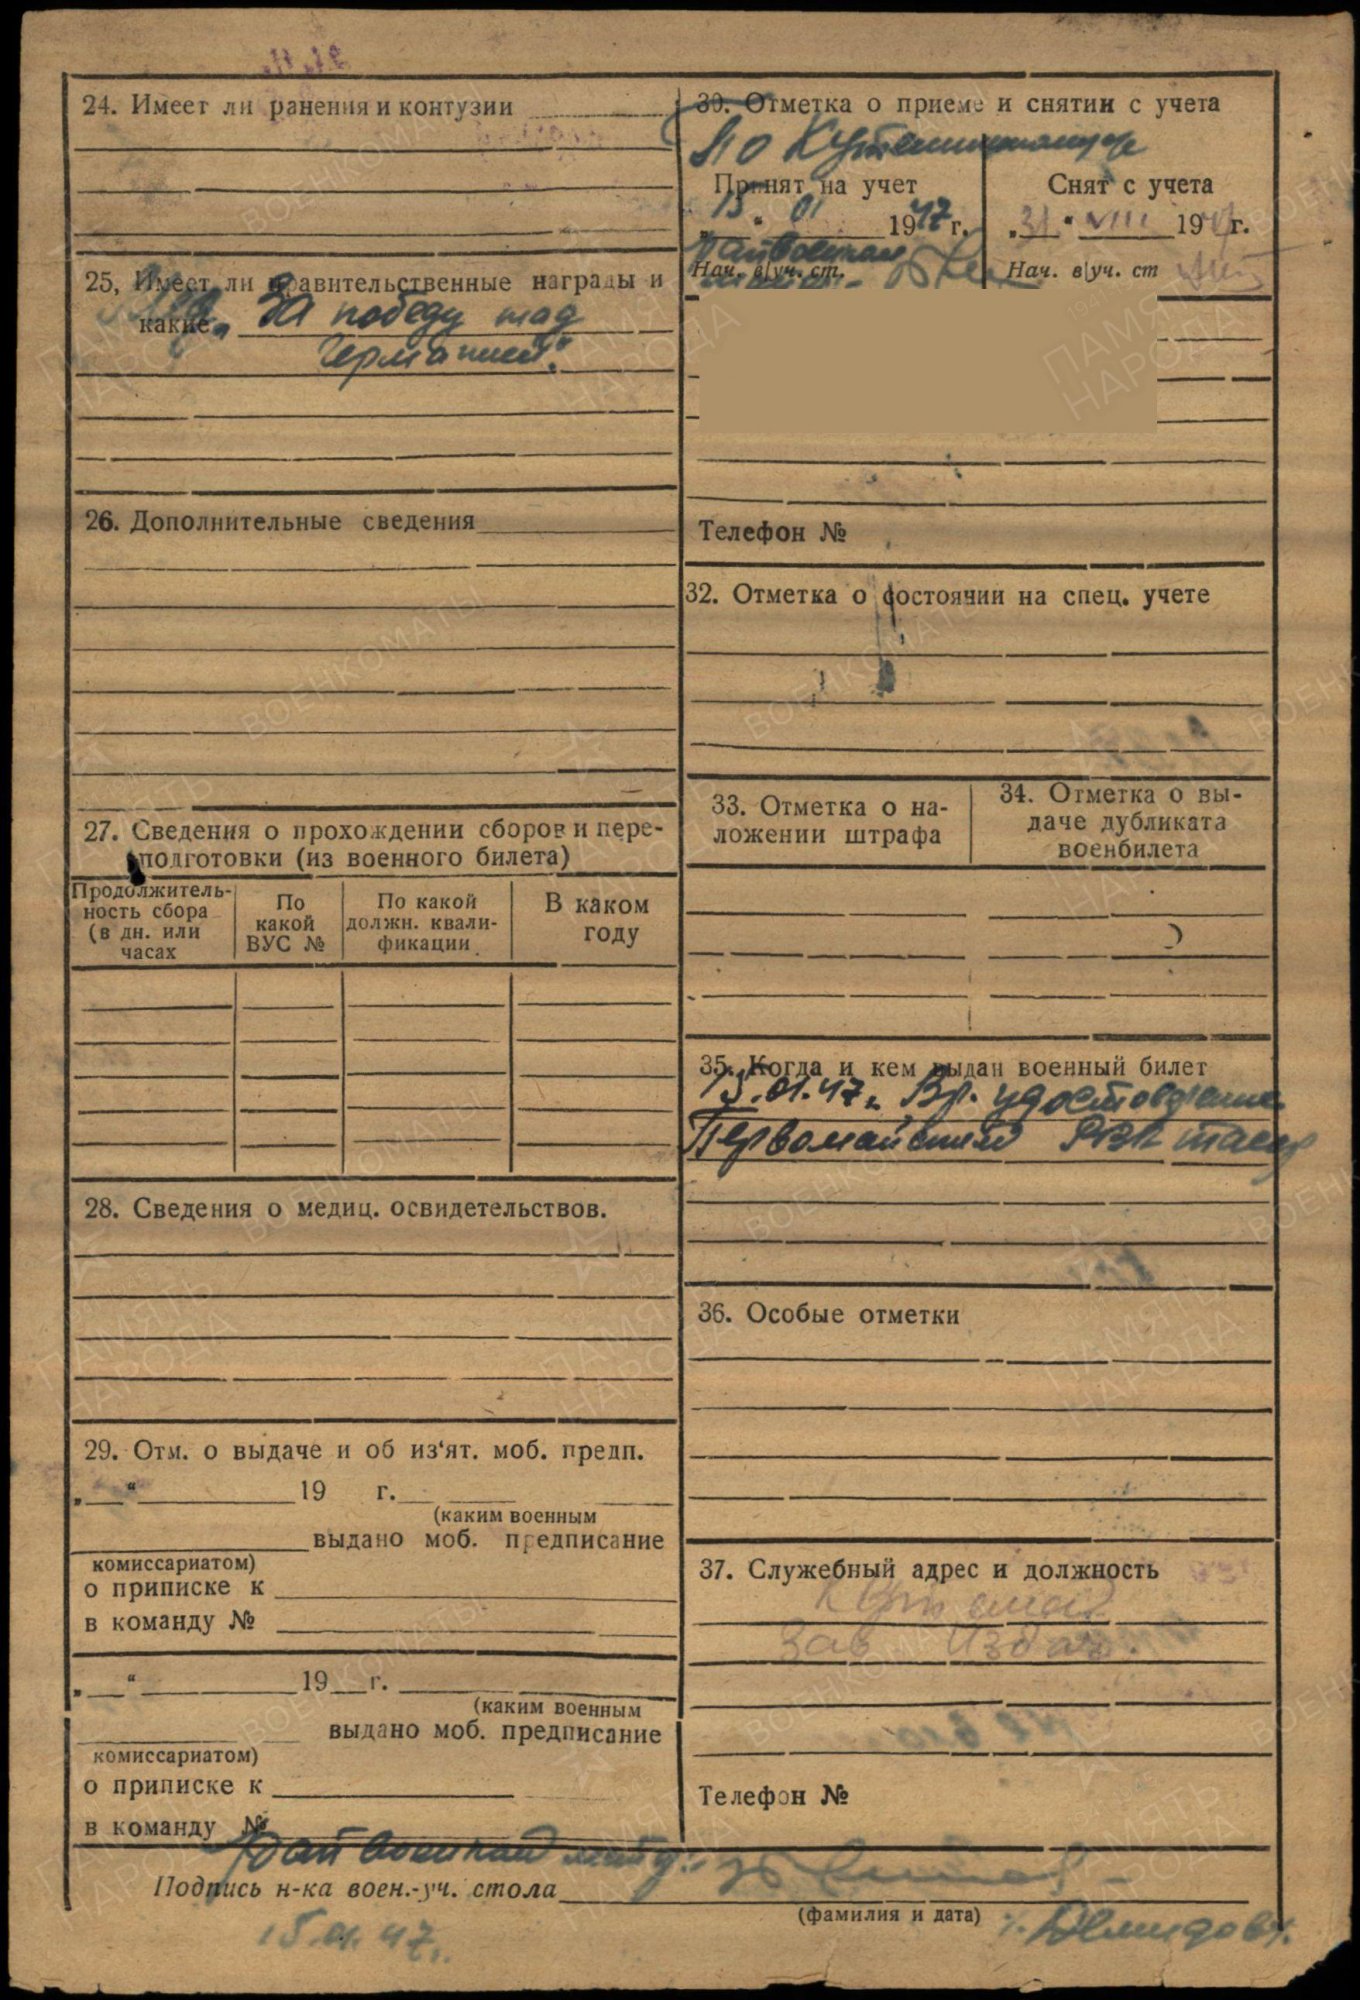 24. Имеет ли ранения и контузии
25, Имеет ли правительственные награды и
какие Мед. „За победу над
Германией."
26. Дополнительные сведения
27. Сведения о прохождении сборов и пере-
подготовки (из военного билета)
Продолжитель-
ность сбора
(в дн. или
часах
По
какой
ВУС №
По какой
должн. квали-
фикации
В каком
году
28. Сведения о медиц. освидетельствов.
29. Отм. о выдаче и об из‘ят. моб. предп.
„ “ 19 г.
(каким военным
выдано моб. предписание
комиссариатом)
о приписке к
в команду №
„ “ 19 г.
(каким военным
выдано моб. предписание
комиссариатом)
о приписке к
в команду №
30. Отметка о приеме и снятии с учета
Принят на учет
15 “ 01 1947 г.
Нач. в/уч. ст.
Снят с учета
„31“ VIII 1947 г.
Нач. в/уч. ст
Телефон №
32. Отметка о состоянии на спец. учете
33. Отметка о на-
ложении штрафа
34. Отметка о вы-
даче дубликата
военбилета
35. Когда и кем выдан военный билет
15.01.47г. Вр. удостоверение
Первомайский РВК
36. Особые отметки
37. Служебный адрес и должность
Зав. Избач.
Телефон №
Подпись н-ка воен.-уч. стола
(фамилия и дата)
15.01.47г.
ПАМЯТЬ
НАРОДА
ВОЕНКОМАТЫ